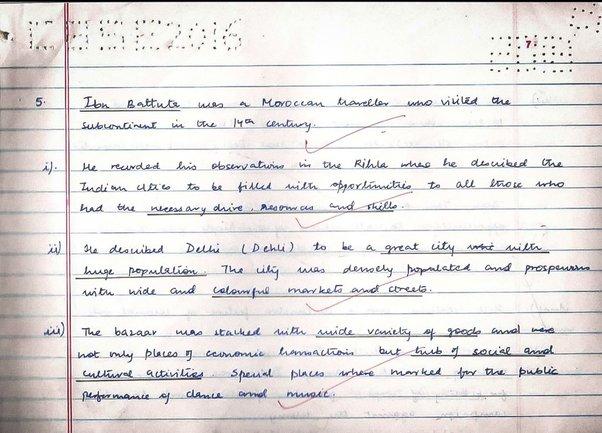 CBSE2016
7
5. Ibn Battuta was a Moroccan traveller who visited the
subcontinent in the 14th century.
i). He recorded his observations in the Rihla where he described the
Indian cities to be filled with opportunities to all those who
had the necessary drive, resources and skills.
ii) He described Delhi (Dehli) to be a great city with
huge population. The city was densely populated and prosperous
with wide and colourful markets and streets.
iii) The bazaar was stacked with wide variety of goods and were
not only places of economic transactions but hub of social and
cultural activities. Special places where marked for the public
performance of dance and music.